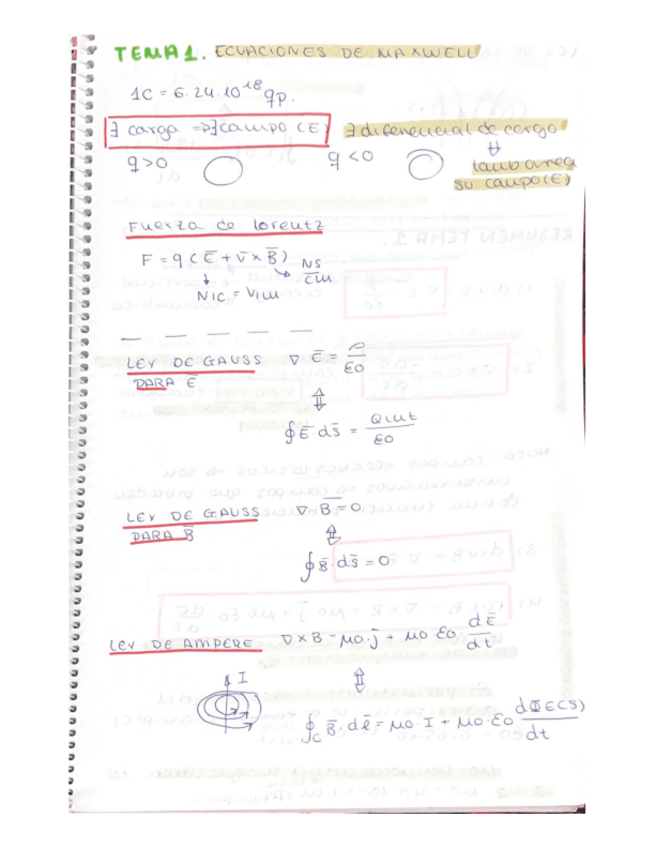 TEMA 1. ECUACIONES DE MAXWELL
1C = 6.24.10¹⁸ qp.
∃ carga => ∃ campo (E) ∃ diferencial de carga
⇕
q>0 q<0
su campo (E)
Fuerza de Lorentz
F = q (E̅ + v̅ × B̅)
N/C = V/m
LEY DE GAUSS ∇ E̅ = ρ/ε0
PARA E̅
⇕
∮ E̅ ds̅ = Qint/ε0
LEY DE GAUSS ∇ B̅ = 0
PARA B̅
⇕
∮ B̅ ds̅ = 0
LEY DE AMPERE ∇×B = μ0·j̅ + μ0·ε0 dE̅/dt
I ⇕
∮C B̅·dl̅ = μ0·I + μ0·ε0 dΦE(S)/dt